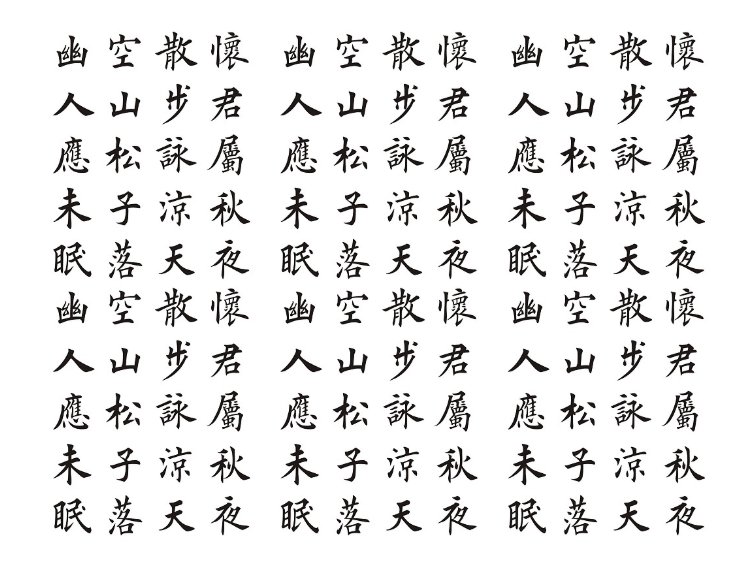 懷君屬秋夜
散步詠涼天
空山松子落
幽人應未眠
懷君屬秋夜
散步詠涼天
空山松子落
幽人應未眠
懷君屬秋夜
散步詠涼天
空山松子落
幽人應未眠
懷君屬秋夜
散步詠涼天
空山松子落
幽人應未眠
懷君屬秋夜
散步詠涼天
空山松子落
幽人應未眠
懷君屬秋夜
散步詠涼天
空山松子落
幽人應未眠